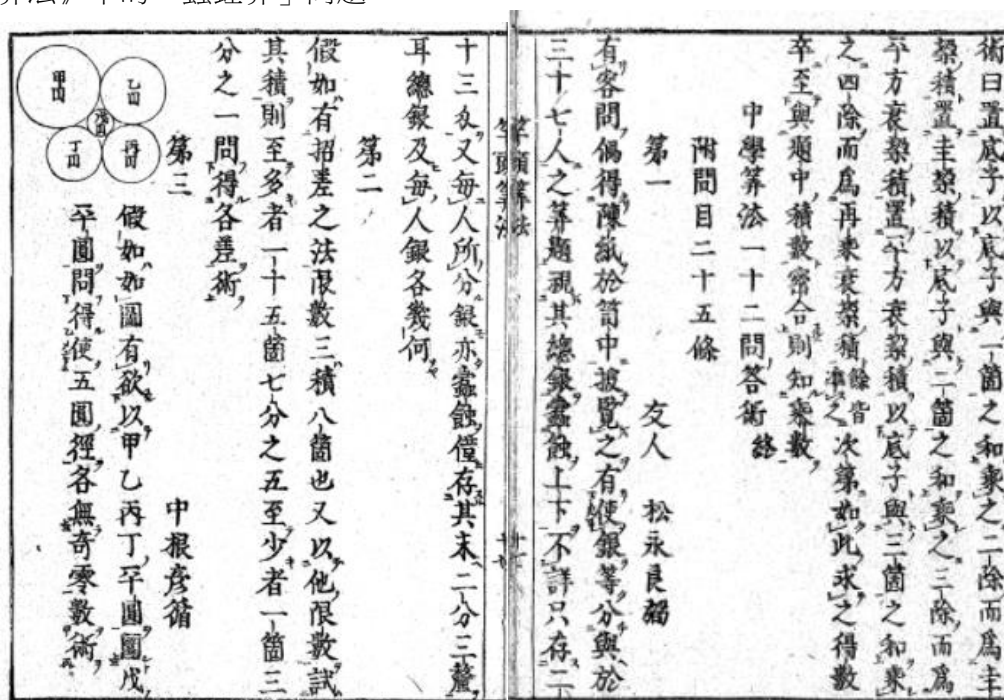 算法》中的「蟲蛀算」問題
術曰置底子以底子與一箇之和乘之二除而爲圭
垜積置圭垜積以底子與二箇之和乘之三除而爲
平方衰垜積置平方衰垜積以底子與三箇之和乘
之四除而爲再乘衰垜積餘皆準之次第如此求之得數
卒至與題中積數密合則知乘數
中學筭法一十二問答術終
附問目二十五條
第一 友人 松永良弼
有客問偶得陳紙於笥中披覽之有使銀等分與於
三十七人之筭題視其總銀蠹蝕上下不詳只存二
竿頭筭法
十三匁又每人所分銀亦蠹蝕僅存其末二分三釐
耳總銀及每人銀各幾何
第二
假如有招差之法限數三積八箇也又以他限數試
其積則至多者一十五箇七分之五至少者一箇三
分之一問得各差術
第三 中根彥循
甲圓
乙圓
戊圓
丁圓
丙圓
假如如圖有欲以甲乙丙丁平圓圍戊
平圓問得使五圓徑各無奇零數術